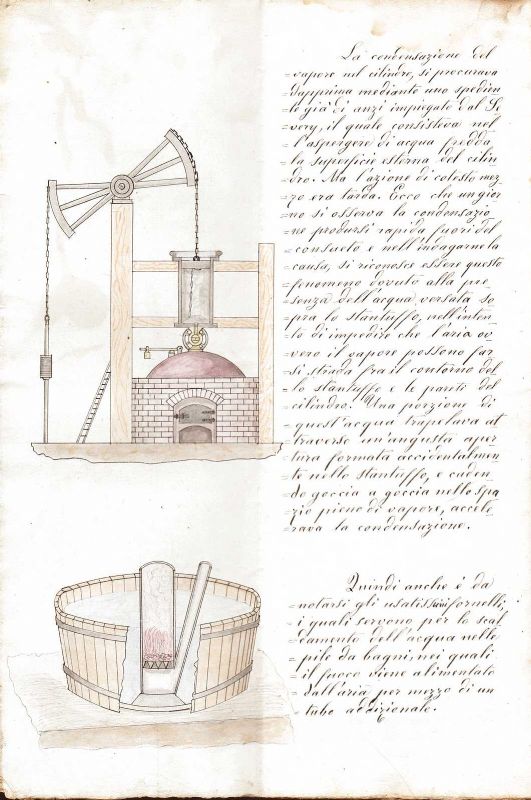 La condensazione del
=vapore nel cilindro, si procurava
=dapprima mediante uno spedien=
=te già d'anzi impiegato dal Sa=
=very, il quale consisteva nel
=l'aspergere di acqua fredda
=la superficie esterna del cilin=
=dro. Ma l'azione di cotesto mez=
=zo era tarda. Ecco che un gior=
=no si osserva la condensazio=
=ne prodursi rapida fuori del
=consueto e nell'indagarne la
=causa, si riconosce essere questo
=fenomeno dovuto alla pre=
=senza dell'acqua versata so=
=pra lo stantuffo, nell'inten=
=to di impedire che l'aria ov=
=vero il vapore possono far=
=si strada fra il contorno del=
=lo stantuffo e le pareti del
=cilindro. Una porzione di
=quest'acqua trapelava at=
=traverso un'angusta aper=
=tura formata accidentalmen=
=te nello stantuffo, e caden=
=do goccia a goccia nello spa=
=zio pieno di vapore, accele=
=rava la condensazione.
Quindi anche è da
=notarsi gli usatissimi fornelli,
=i quali servono per lo scal=
=damento dell'acqua nelle
=pile da bagni, nei quali
=il fuoco viene alimentato
=dall'aria per mezzo di un
=tubo addizionale.